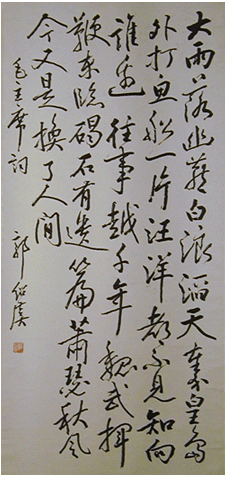 大雨落幽燕白浪滔天秦皇岛
外打鱼船一片汪洋都不见知向
谁边往事越千年魏武挥
鞭东临碣石有遗篇萧瑟秋风
今又是换了人间
毛主席词
郭绍虞